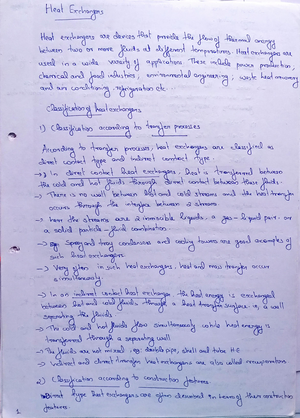 Heat Exchangers
Heat exchangers are devices that provide the flow of thermal energy
between two or more fluids at different temperatures. Heat exchangers are
used in a wide variety of applications. These include power production,
chemical and food industries, environmental engineering, waste heat recovery
and air conditioning, refrigeration etc.
Classification of heat exchangers
1) Classification according to transfer processes
According to transfer processes, heat exchangers are classified as
direct contact type and indirect contact type.
→ In direct contact heat exchangers, heat is transferred between
the cold and hot fluids through direct contact between these fluids.
→ There is no wall between hot and cold streams and the heat transfer
occurs through the interface between 2 streams
→ here the streams are 2 immiscible liquids, a gas-liquid pair, or
a solid particle-fluid combination.
→ eg: Spray and tray condensers and cooling towers are good examples of
such heat exchangers
→ Very often in such heat exchangers, heat and mass transfer occur
simultaneously.
→ In an indirect contact heat exchanger, the heat energy is exchanged
between hot and cold fluids through a heat transfer surface ie, a wall
separating the fluids
→ The cold and hot fluids flow simultaneously while heat energy is
transferred through a separating wall
→ The fluids are not mixed. eg: double pipe, shell and tube HE
→ Indirect and direct transfer heat exchangers are also called recuperators
2) Classification according to construction features
type heat exchangers are often described in terms of their construction
features
1